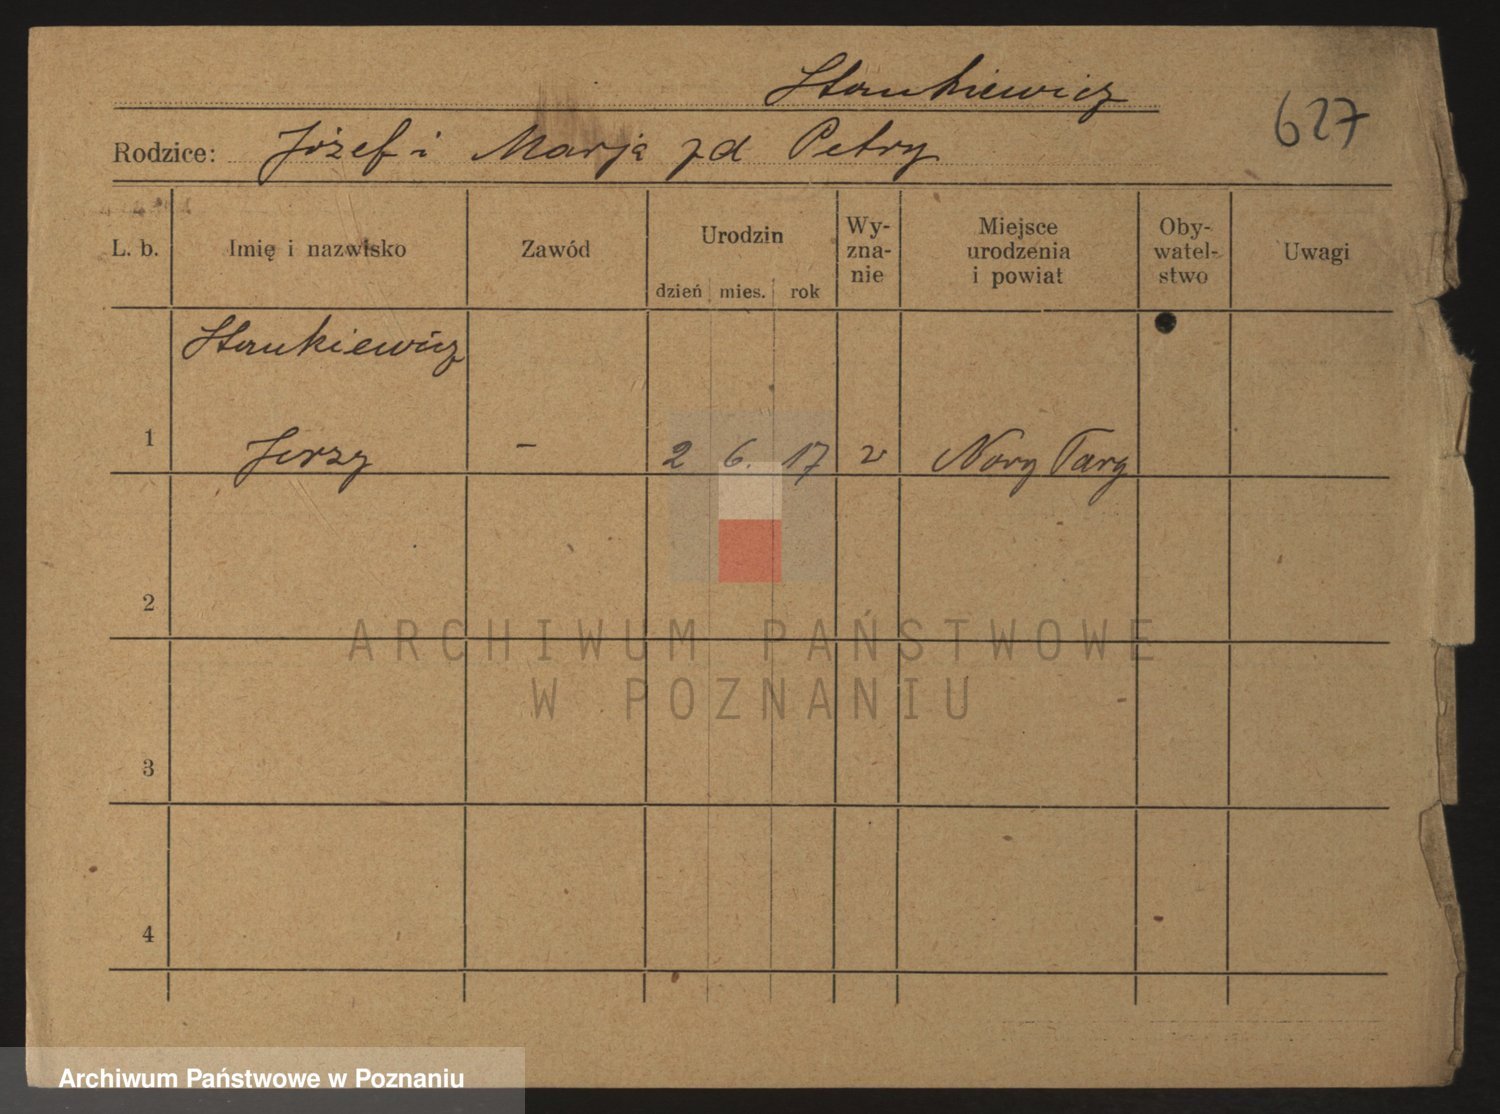 Stankiewicz
627
Rodzice: Józef i Marja zd Petry
L. b. Imię i nazwisko Zawód Urodzin dzień mies. rok Wy-zna-nie Miejsce urodzenia i powiat Oby-watel-stwo Uwagi
Stankiewicz
1 Jerzy - 2 6. 17 Nowy Targ
2
3
4
ARCHIWUM PAŃSTWOWE
W POZNANIU
Archiwum Państwowe w Poznaniu